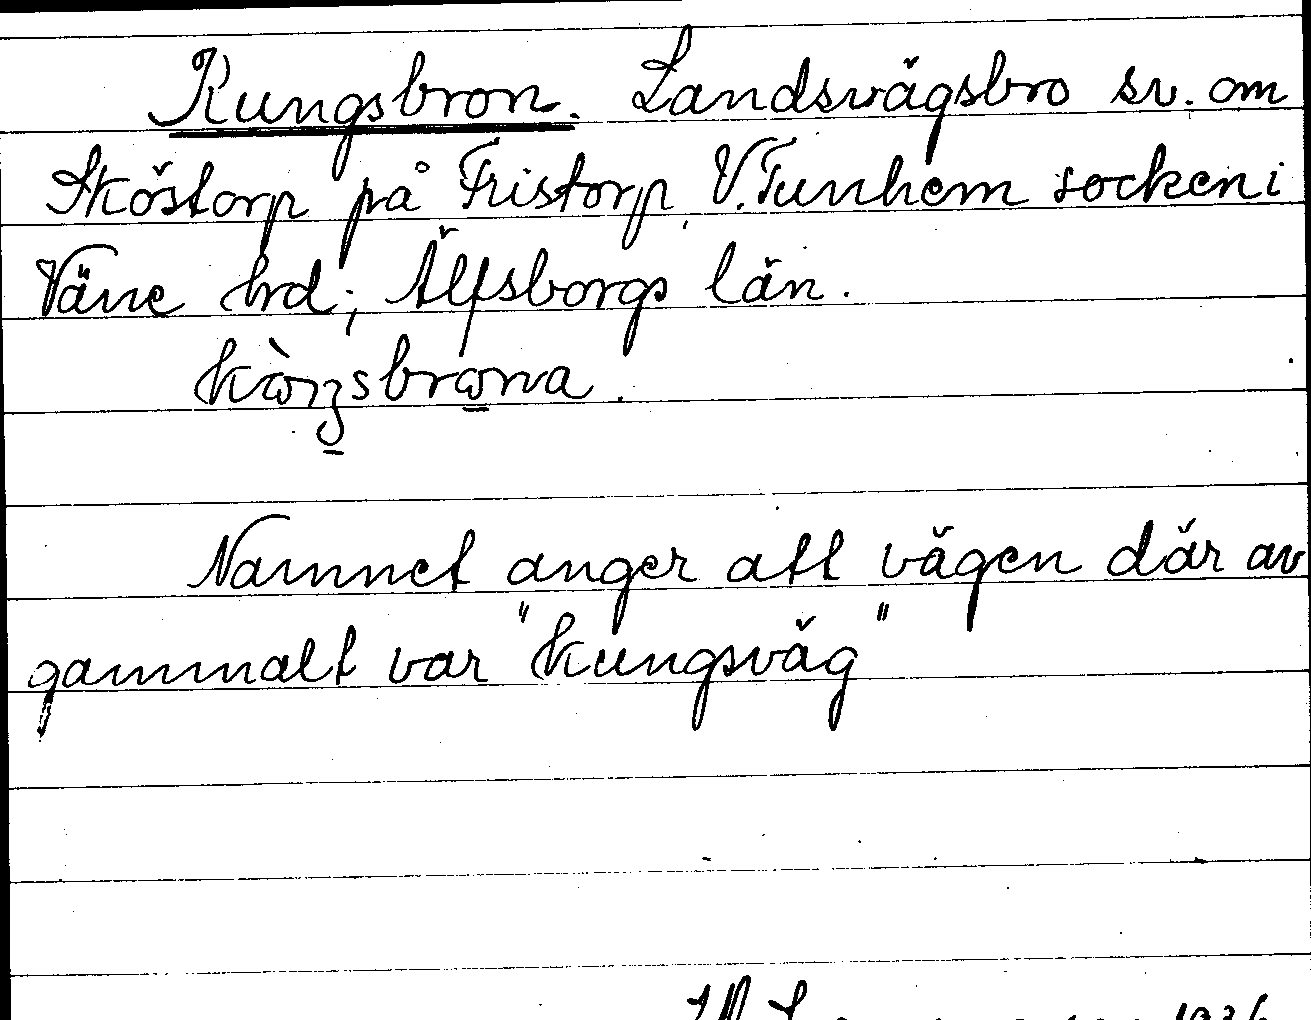 Kungsbron. Landsvägsbro sv. om
Sköstorp på Fristorp, V. Tunhem socken i
Väne hrd; Älfsborgs län.
kòŋsbrona.
Namnet anger att vägen där av
gammalt var "kungsväg"